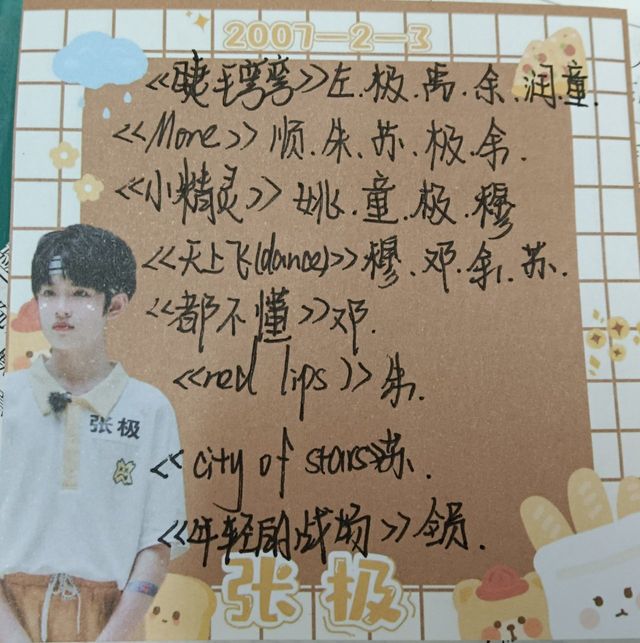 2007-2-3
<<睫毛弯弯>>左.极.禹.余.润.童.
<<More>>顺.朱.苏.极.余.
<<小精灵>>姚.童.极.穆
<<天上飞(dance)>>穆.邓.余.苏.
<<都不懂>>邓.
<<red lips>>朱.
张极
<<city of stars>>苏.
<<年轻的战场>>全员.
张极